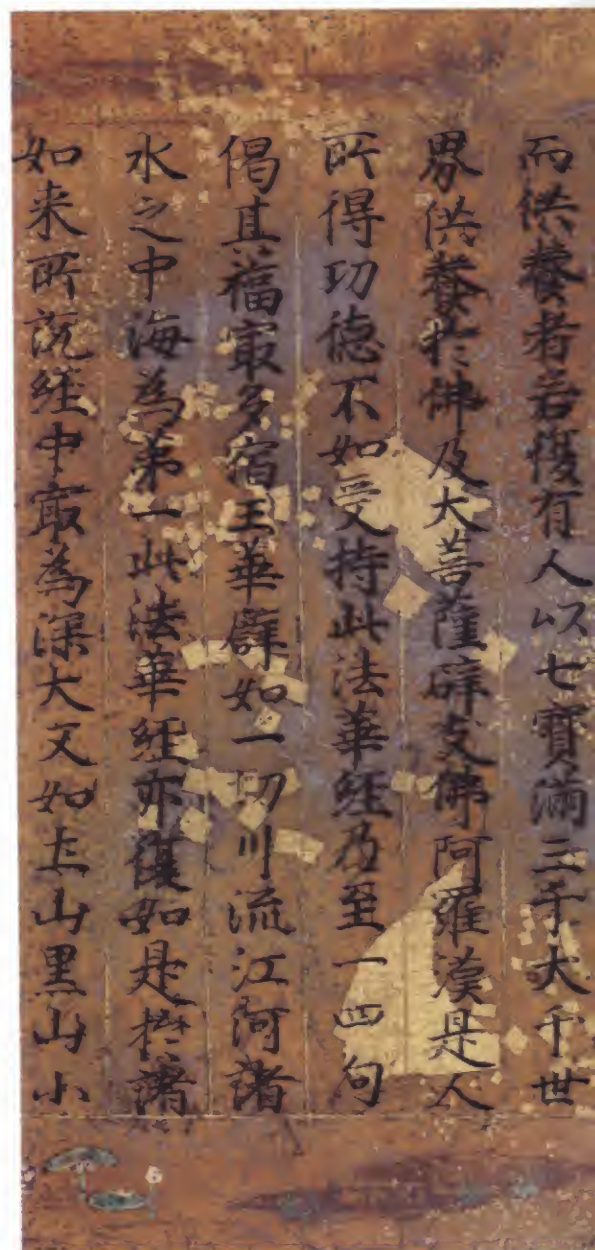 而供養者若復有人以七寶滿三千大千世
界供養於佛及大菩薩辟支佛阿羅漢是人
所得功德不如受持此法華經乃至一四句
偈其福寂多宿王華辟如一切川流江河諸
水之中海為第一此法華経亦復如是於諸
如来所説経中寂為深大又如土山黒山小